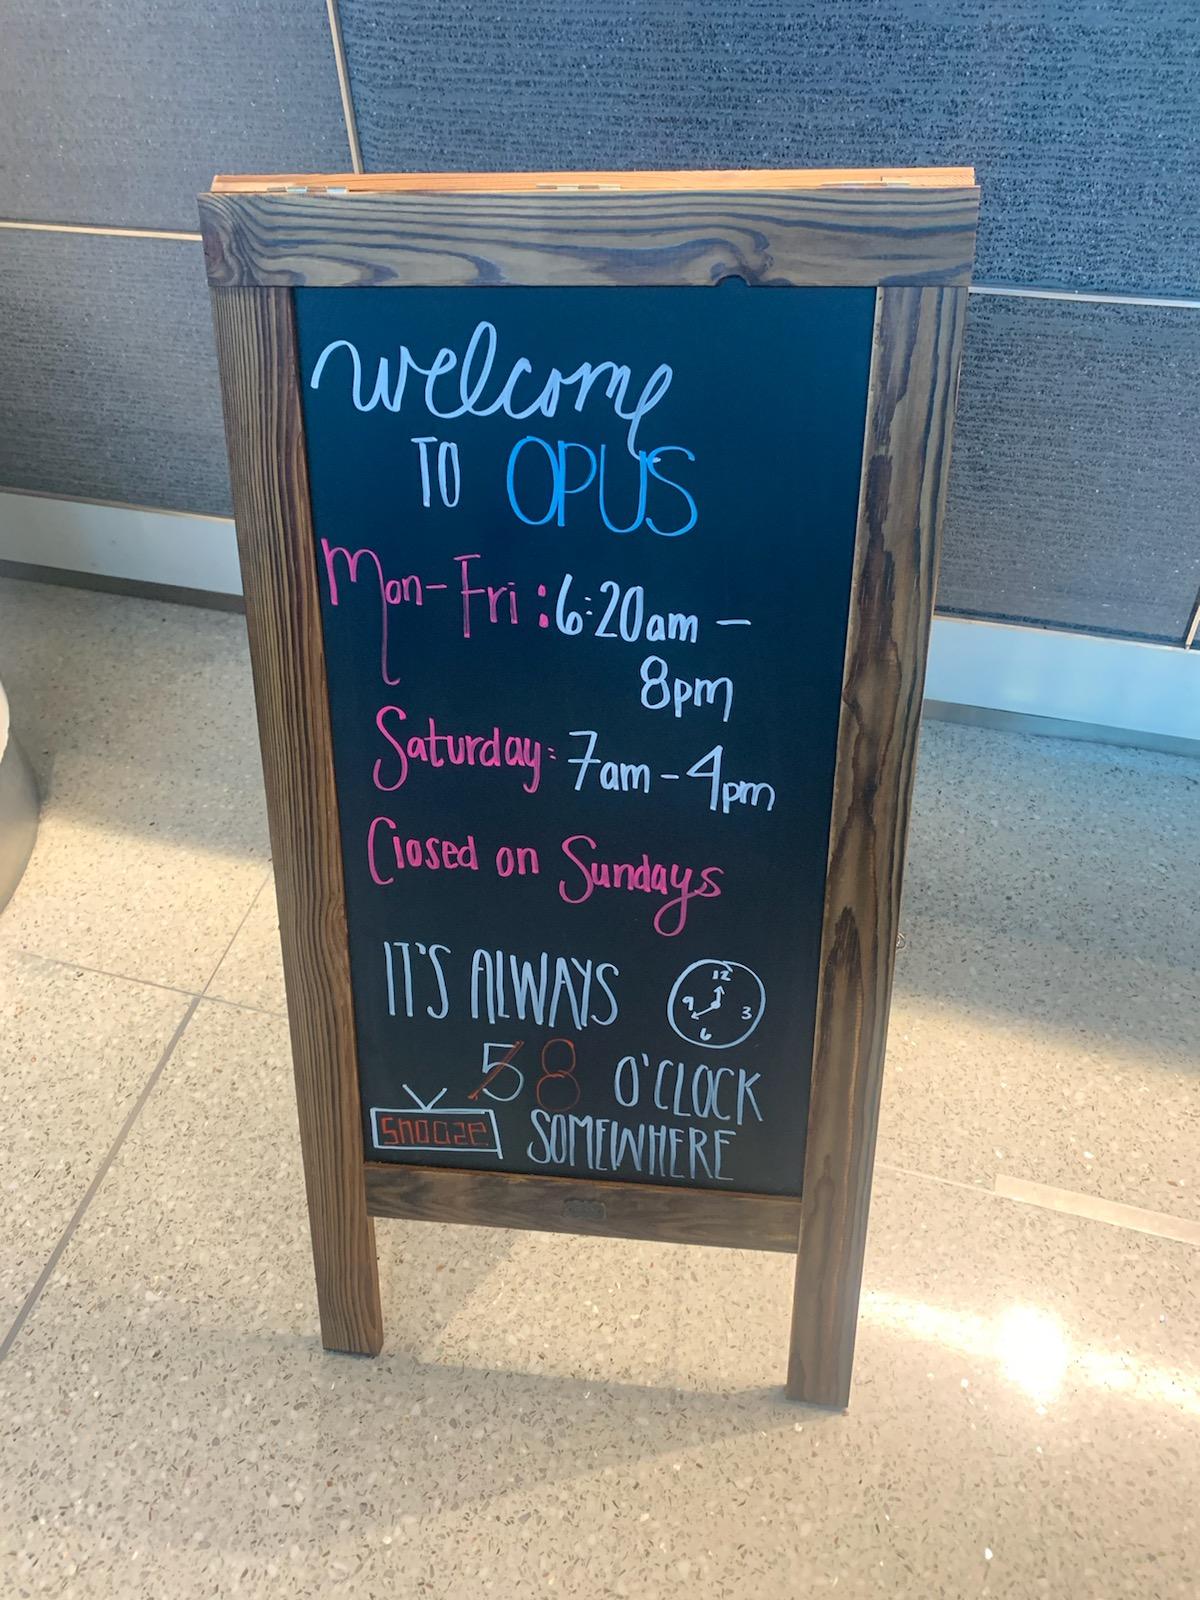 welcome
TO OPUS
Mon-Fri: 6:20am -
8pm
Saturday: 7am - 4pm
Closed on Sundays
IT'S ALWAYS
12
9 3
6
5 8 O'CLOCK
SNOOZE SOMEWHERE